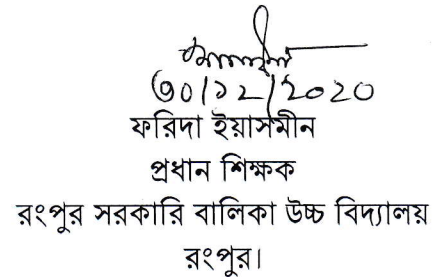 ৩০/১২/২০২০
ফরিদা ইয়াসমীন
প্রধান শিক্ষক
রংপুর সরকারি বালিকা উচ্চ বিদ্যালয়
রংপুর।